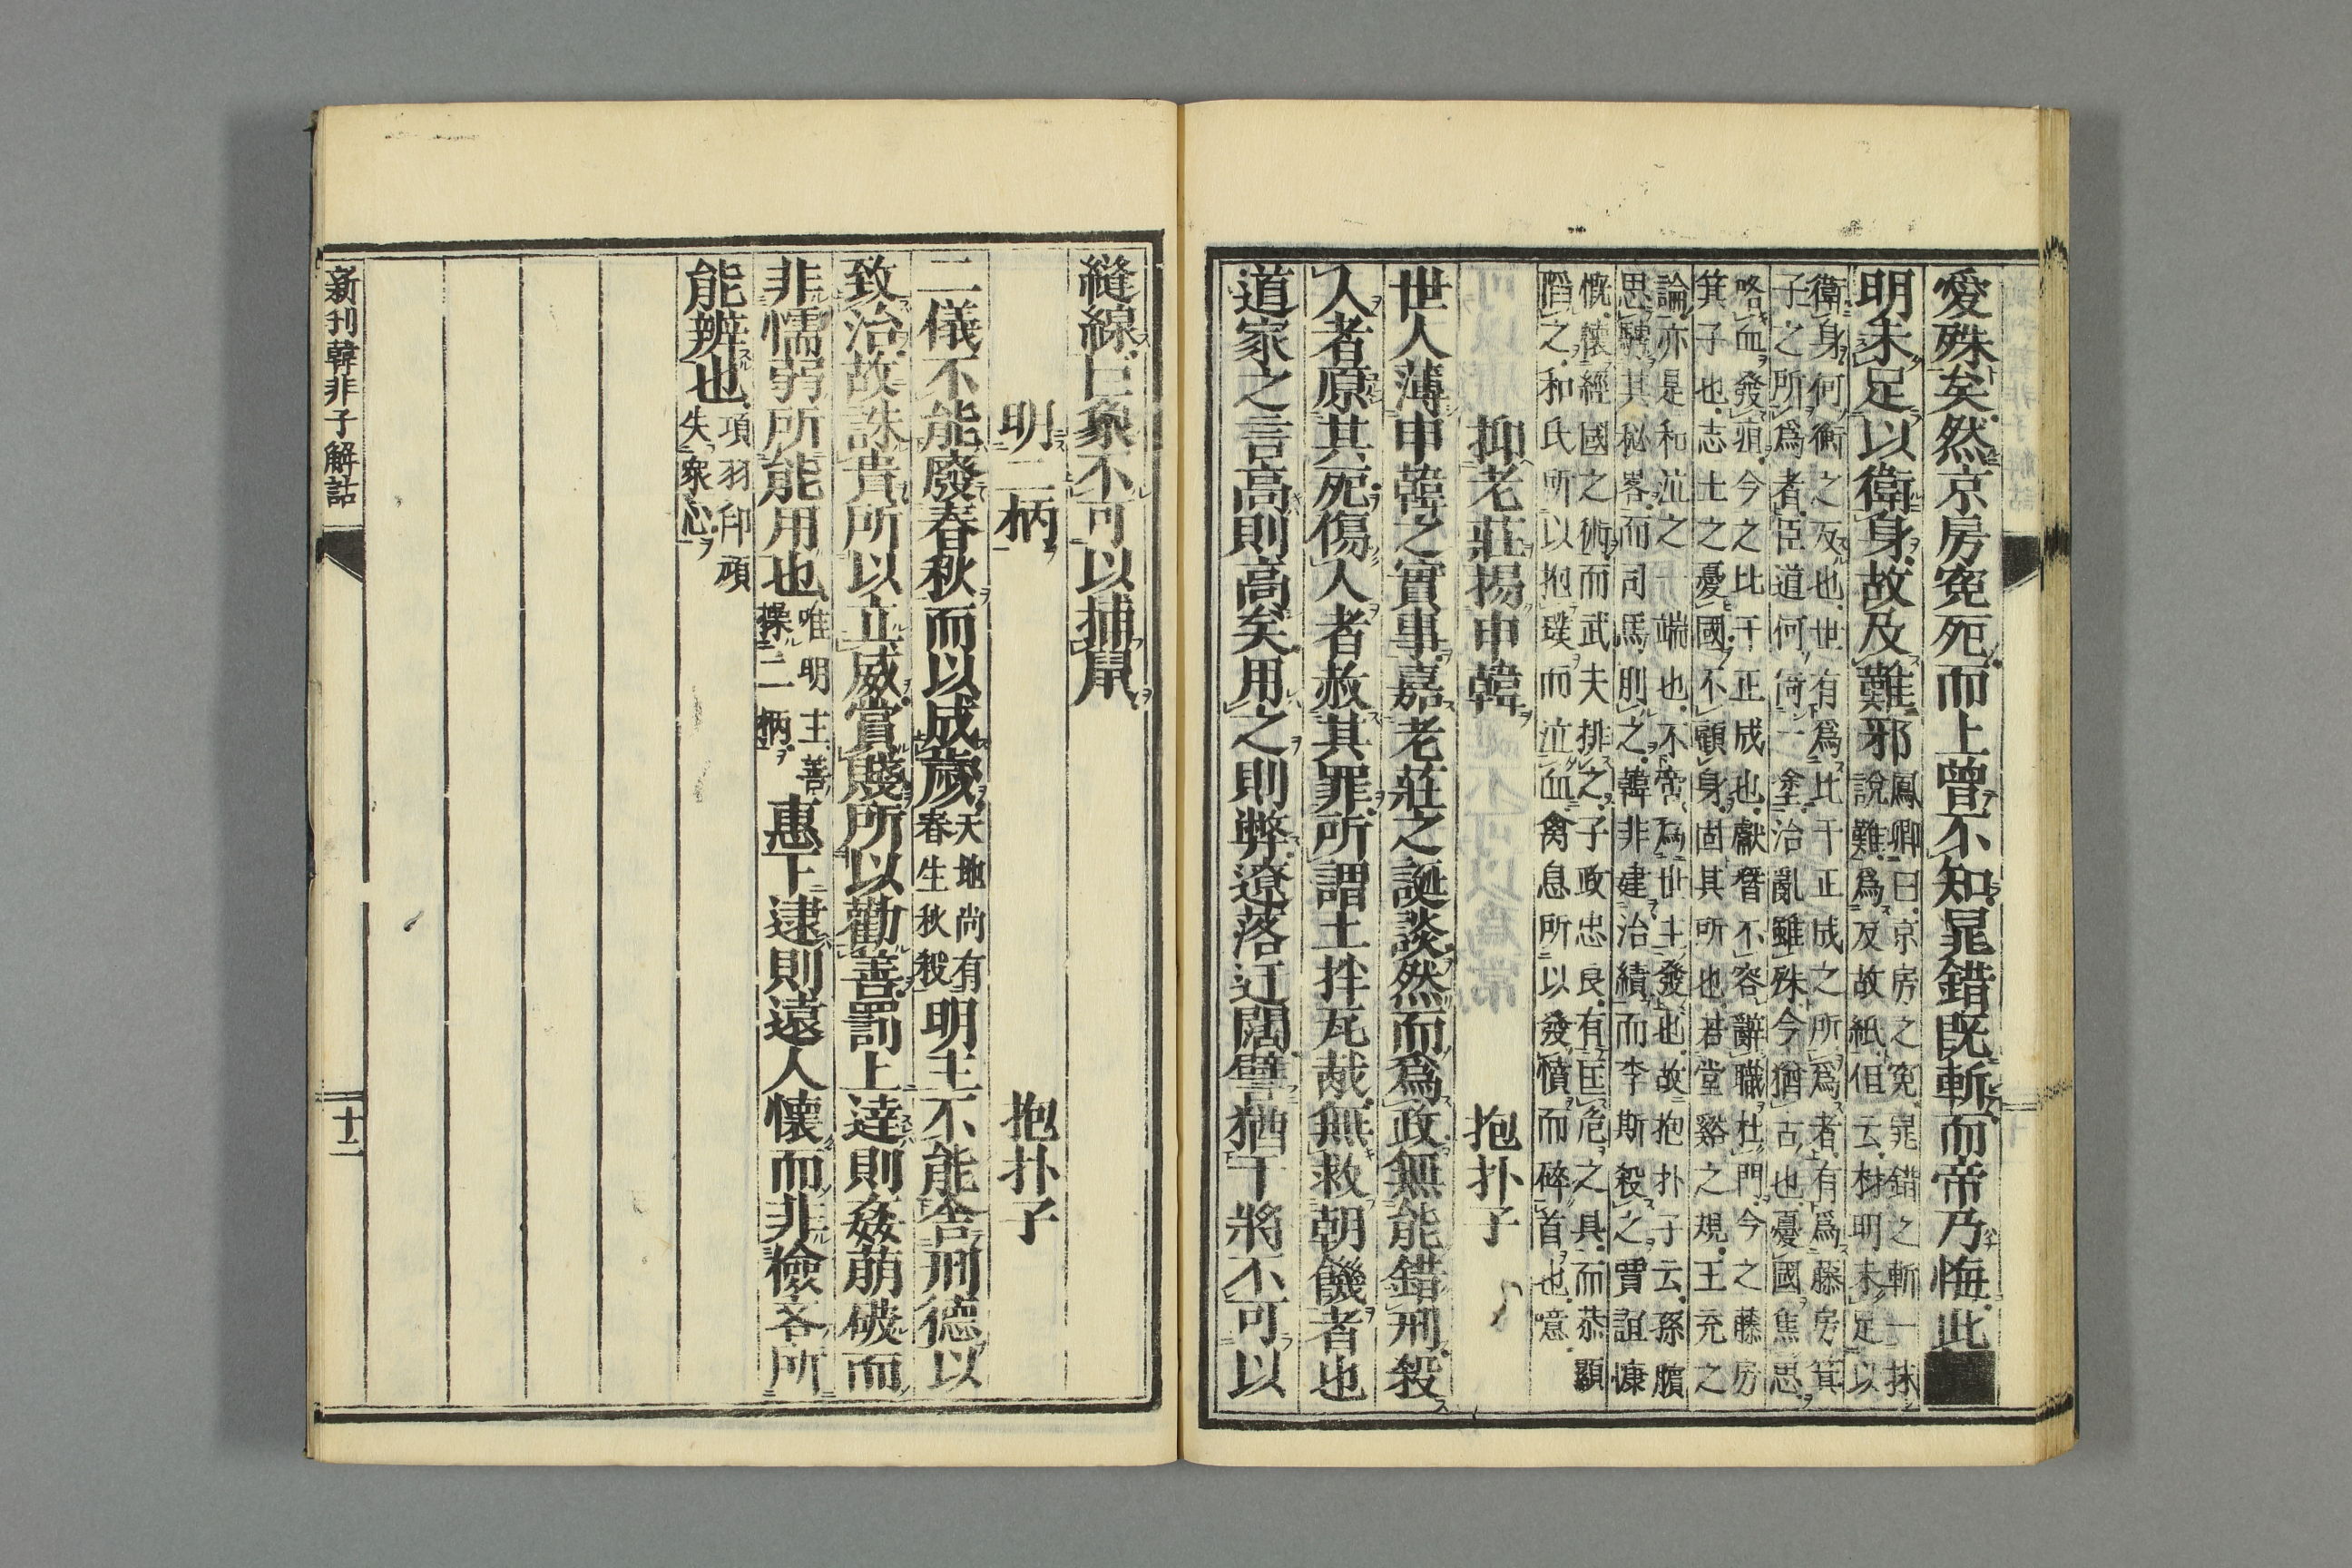 愛殊矣然京房冤死而上曽不知鼂錯既斬而帝乃悔此
明未足以衛身故及難邪鳳卿曰京房之冤鼂錯之斬一抹
說難爲及故紙但云材明未足以
衛身何衡之及也世有爲比干正成之所爲者有爲藤房箕
子之所爲者臣道何尚一塗治亂雖殊今猶古也憂國焦思
咯血發疽今之比干正成也獻替不容辭職杜門今之藤房
箕子也志士之憂國不顧身固其所也若堂谿之規王充之
論亦是和泣之一端也不常爲世主發也故抱朴子云孫臏
思騁其秘畧而司馬刖之韓非建治績而李斯殺之賈誼慷
慨懷經國之術而武夫排之子政忠良有匡危之具而恭顯
陷之和氏所以抱璞而泣血禽息所以發憤而碎首也噫
抑老莊揚申韓　抱朴子
世人薄申韓之實事嘉老莊之誕談然而爲政無能錯刑殺
人者原其死傷人者赦其罪所謂土柈瓦胾無救朝饑者也
道家之言高則高矣用之則弊遼落迂闊譬猶干將不可以
縫線巨象不可以捕鼠
明二柄　抱朴子
二儀不能廢春秋而以成歲天地尚有
春生秋殺明主不能舍刑德以
致治故誅貴所以立威賞賤所以勸善罰上達則姦萠破而
非懦弱所能用也唯明主善
操二柄惠下逮則遠人懷而非儉吝所
能辨也項羽印刓
失衆心
新刊韓非子解詁
十二